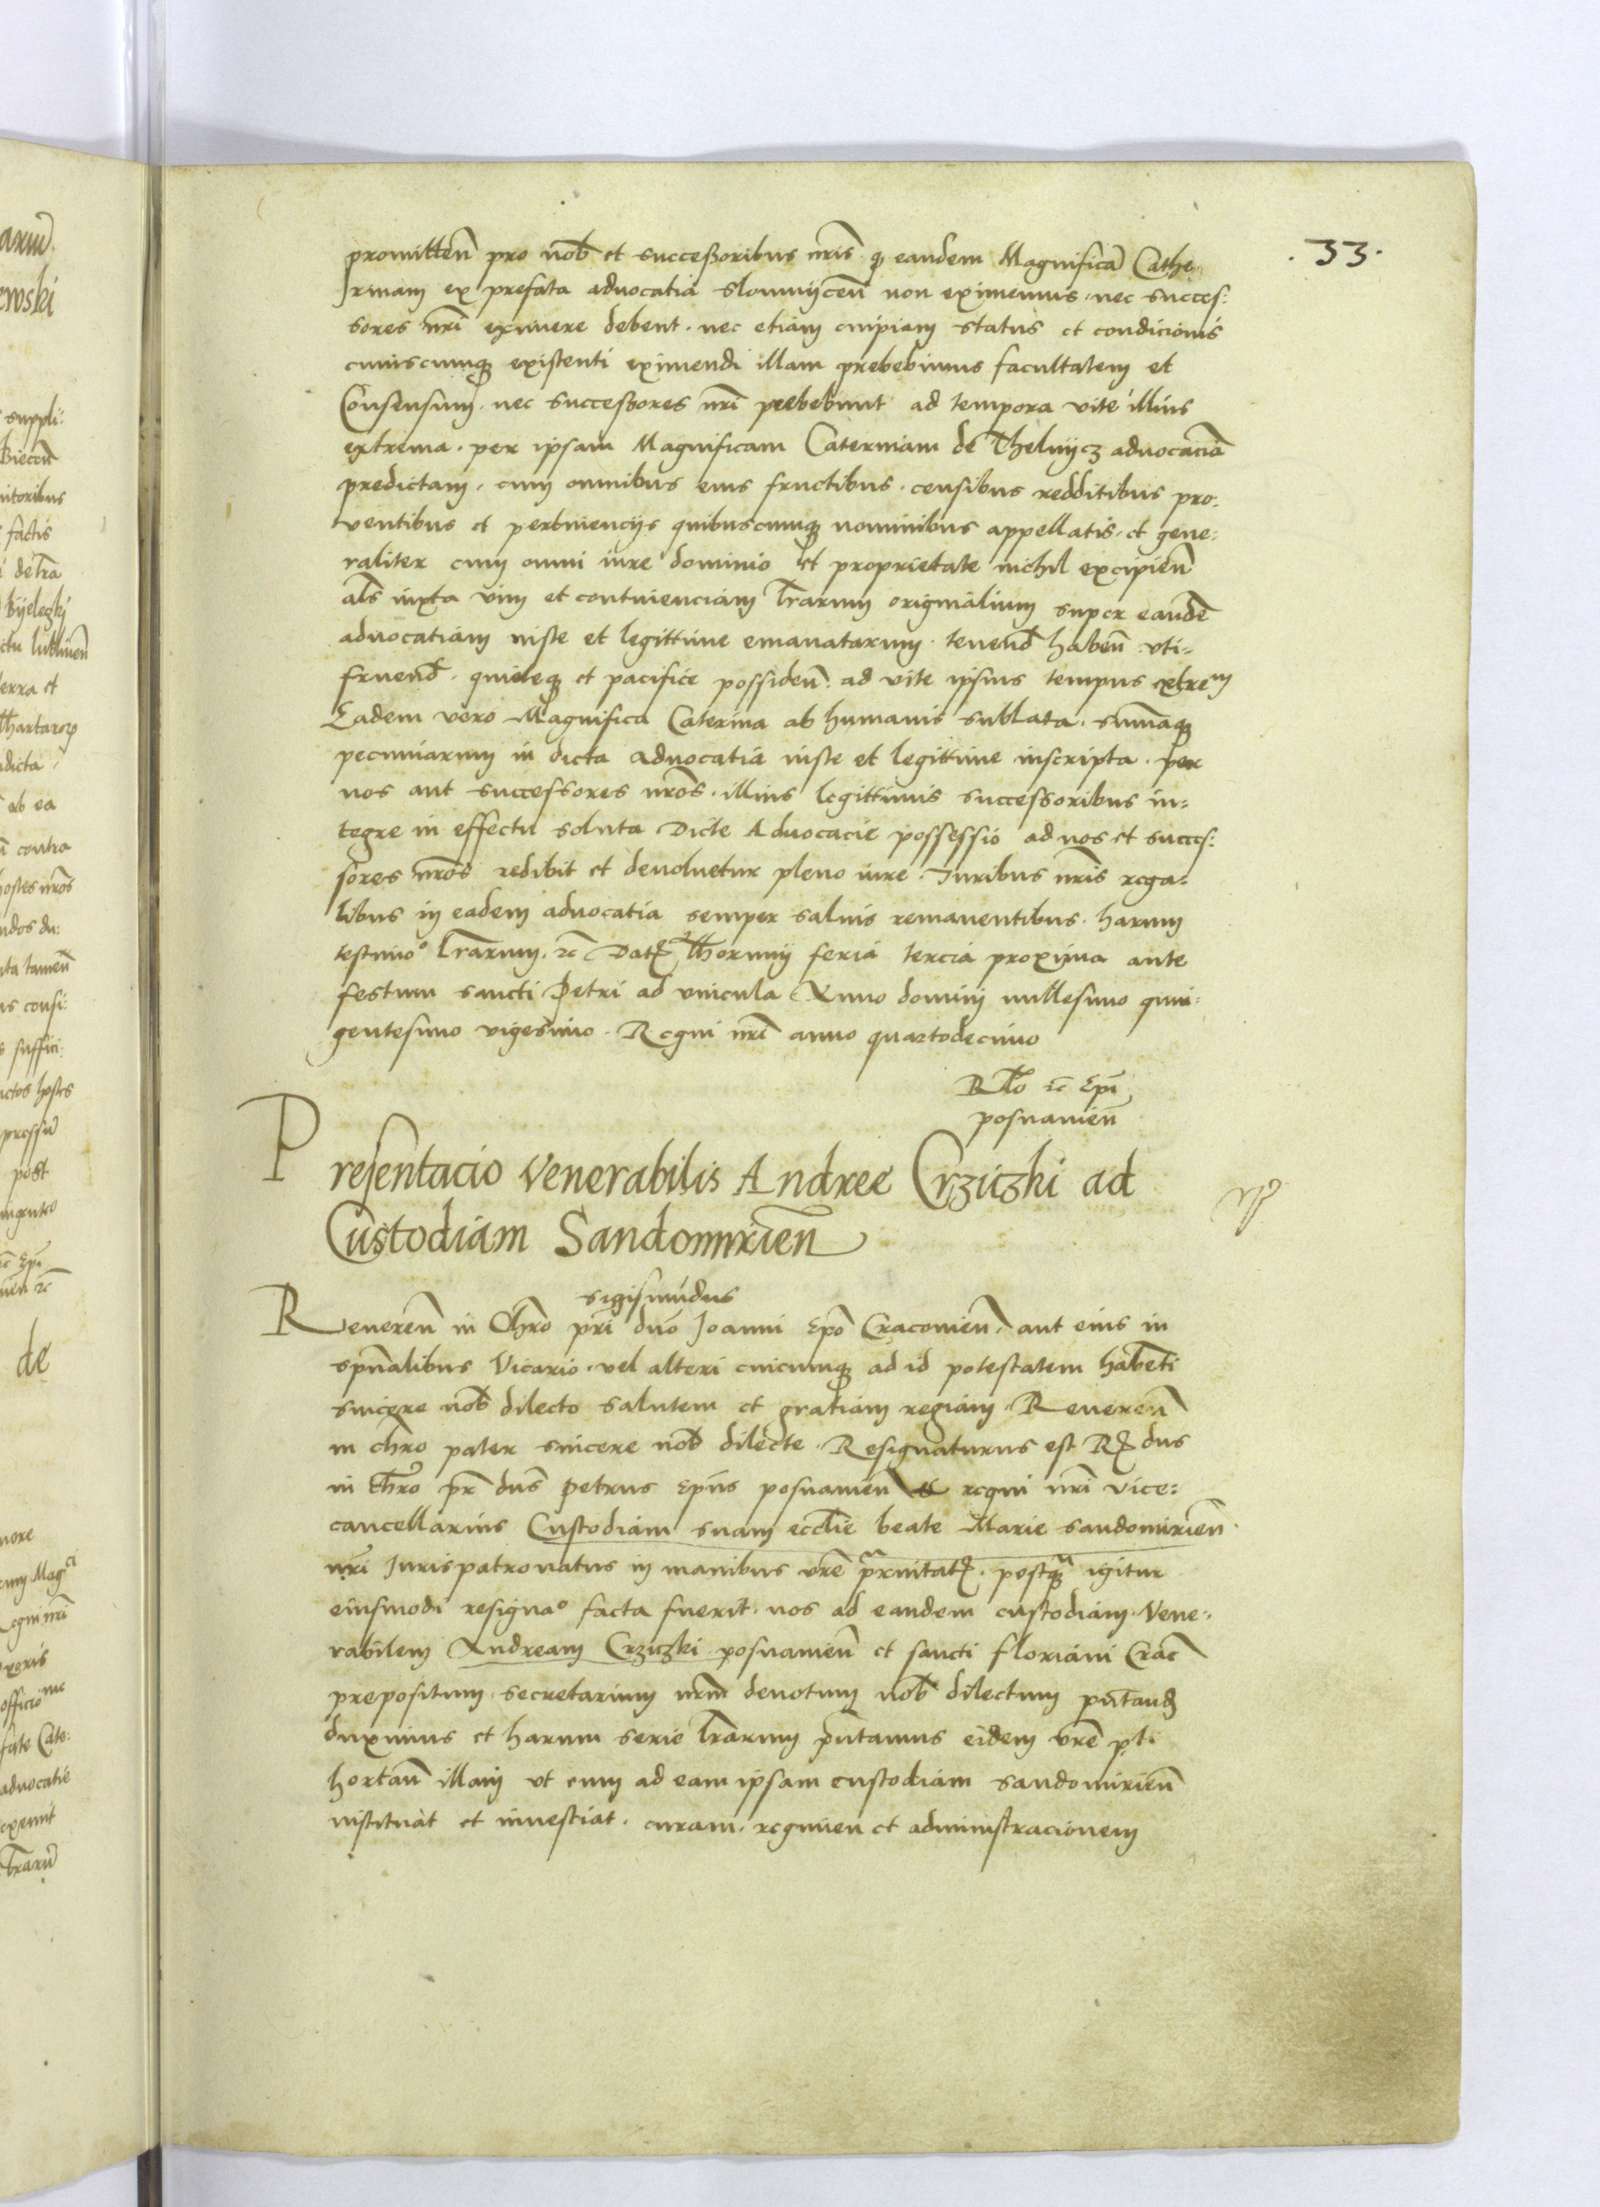 .33.
promitten̄ pro nob̄ et successoribus nr̄is q̨ eandem Magnificā Cathe-
rinam ex prefata advocatia slomnijcen̄ non eximemus, nec succes:
sores nr̄i eximere debent. nec etiam cuipiam status et condicionis
cuiuscumq̨ existenti eximendi illam prebebimus facultatem et
Consensum, nec successores nr̄i prebebunt ad tempora vite illius
extrema. per ipsam Magnificam Caterinam de Thelnijcz advocaciā
predictam, cum omnibus eius fructibus. censibus redditibus pro:
ventibus et pertinencijs quibuscumq̨ nominibus appellatis, et gene:
raliter cum omni iure dominio et proprietate nichil excipien̄
al̄s iuxta vim et continenciam l̄rarum originalium super eandē
advocatiam iuste et legittime emanatarum. tenend̄ haben̄ uti-
fruend̄. quieteq̨ et pacifice possiden̄. ad vite ipsius tempus extrem̄
Eadem vero Magnifica Caterina ab humanis sublata. sum̄aq̨
pecuniarum in dicta advocatia iuste et legittime inscripta. per
nos aut successores nr̄os. illius legittimis successoribus in:
tegre in effectu soluta Dicte Advocacie possessio ad nos et succes:
sores nr̄os redibit et devolvetur pleno iure. Iuribus nr̄is rega:
libus in eadem advocatia semper salvis remanentibus. harum
testimo° l̄rarum. zc̄ Datꝭ Thorunij feria tercia proxima ante
festum sancti Petri ad vincula Anno domini millesimo quin:
gentesimo vigesimo. Regni nr̄i anno quartodecimo
Rl̄o zc̄ Ep̄i
posnanien̄
Presentacio Venerabilis Andree Crziczki ad
Custodiam Sandomirien̄
sigismūdus
Reveren̄ in Chr̄o pr̄i dn̄o Joanni Ep̄o Cracovien̄. aut eius in
sp̄ualibus Vicario. vel alteri cuicumq̨ ad id potestatem habēti
sincere nob̄ dilecto salutem et gratiam regiam. Reveren̄
in chr̄o pater sincere nob̄ dilecte. Resignaturus est Rꝭ dn̄s
in Chr̄o pr̄ dn̄s Petrus Ep̄us posnanien̄ et regni nr̄i vice:
cancellarius Custodiam suam eccl̄ie beate Marie sandomirien̄.
nr̄i Jurispatronatus in manibus vr̄e pr̄nitatꝭ. postq̨ᵃ igitur
eiusmodi resigna° facta fuerit. nos ad eandem custodiam. Vene:
rabilem Andream Crziczki posnanien̄ et sancti floriani Crac̄
prepositum. secretarium nr̄m devotum nob̄ dilectum pn̄tandꝭ
duximus et harum serie l̄rarum pn̄tamus eidem vr̄e p̄ti
hortan̄ illam ut eum ad eam ipsam custodiam sandomirien̄
instituat et investiat. curam. regimen et administracionem